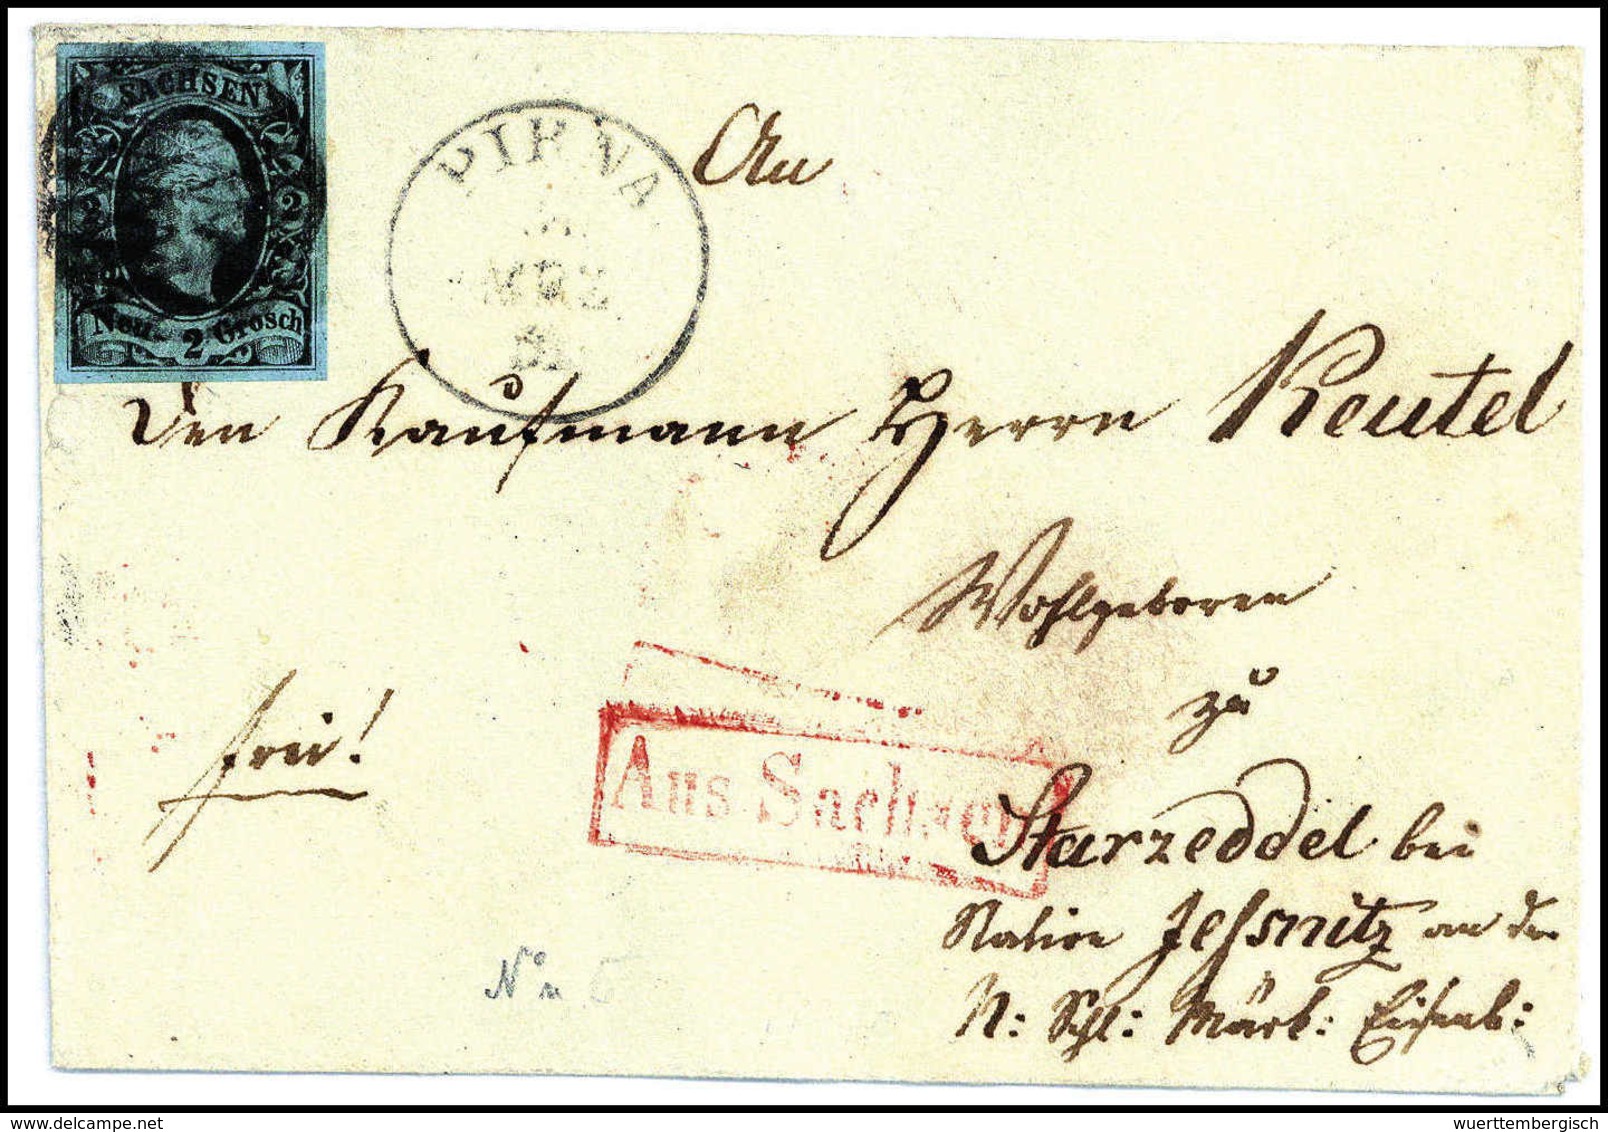 SACHSEN
2 2
Neu 2 Grosch
PIRNA
MRZ
An
Den Kaufmann Herrn Keutel
Wohlgeboren
zu
frei!
Aus Sachsen
Starzeddel bei
Station Jeßnitz an der
N: Schl: Märk: Eisenb:
No 5
www.delcampe.net
wuerttembergisch